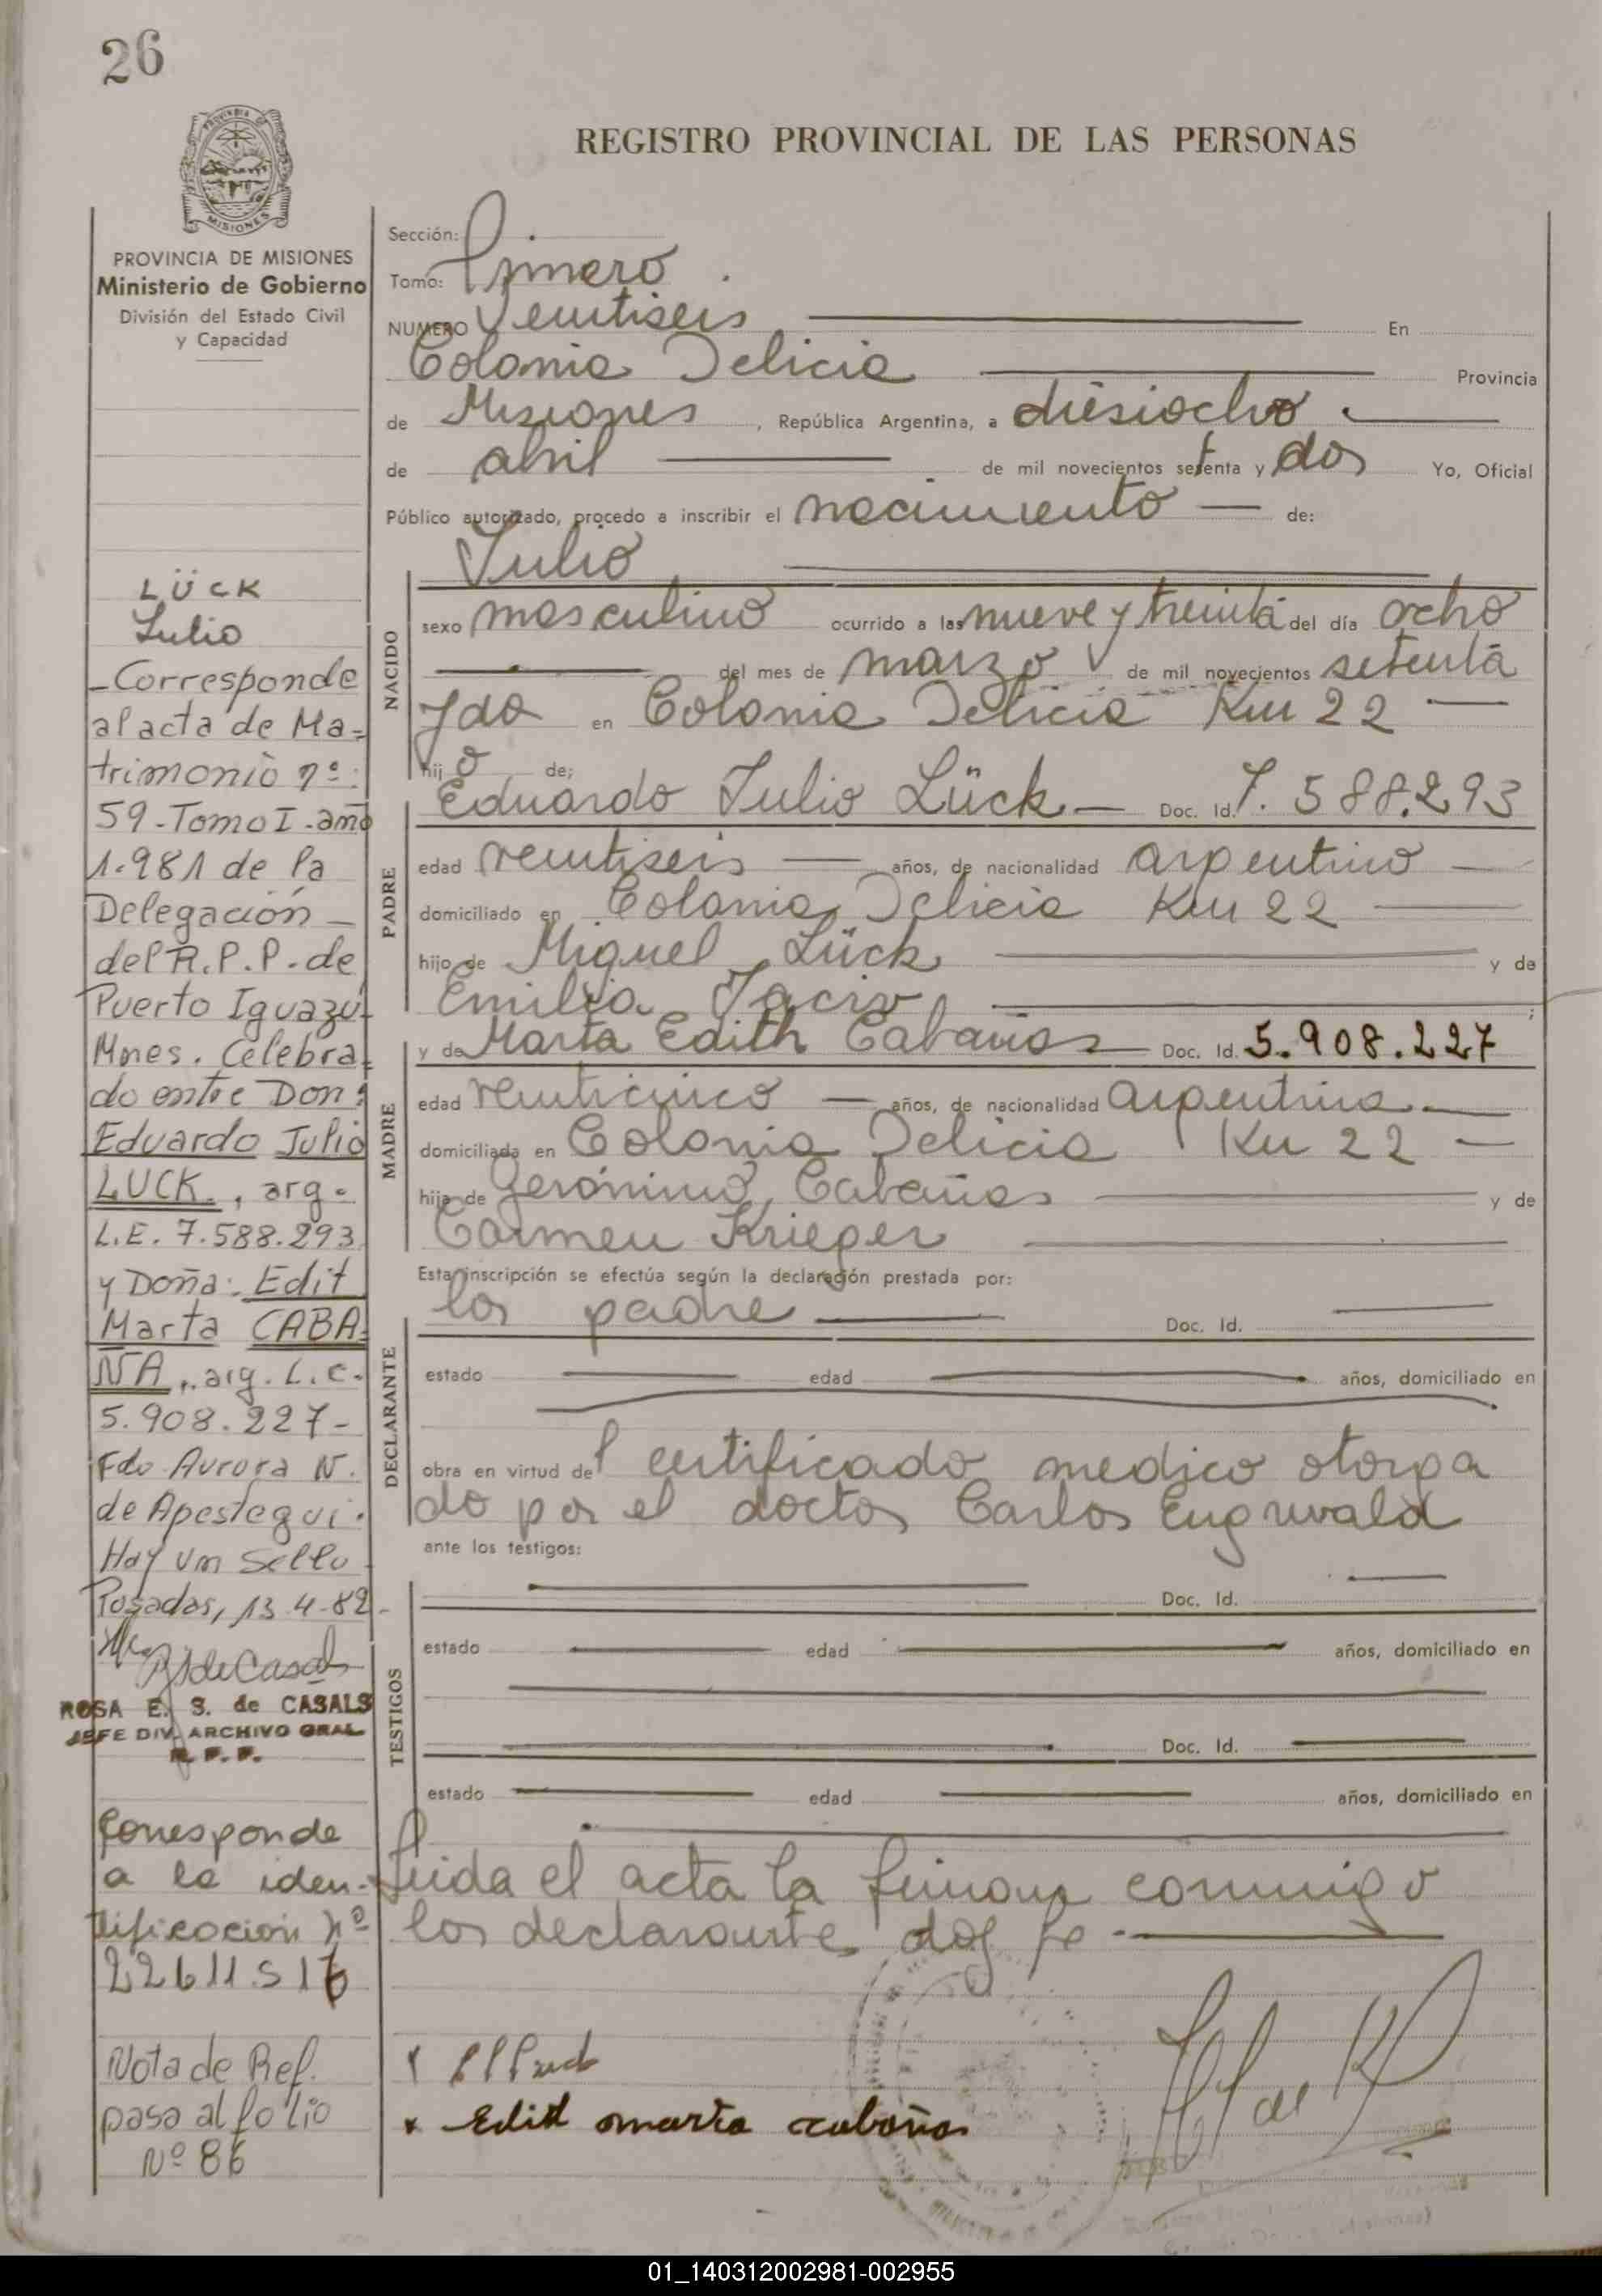 26
REGISTRO PROVINCIAL DE LAS PERSONAS
PROVINCIA DE MISIONES
Ministerio de Gobierno
División del Estado Civil
y Capacidad
LÜCK
Julio
-Corresponde
al acta de Ma=
trimonio nº:
59-Tomo I-año
1.981 de la
Delegación-
del R.P.P. de
Puerto Iguazú-
Mnes. Celebra=
do entre Don:
Eduardo Julio
LUCK., arg.
L.E. 7.588.293
y Doña: Edit
Marta CABA=
ÑA, arg. L.C.
5.908.227-
Fdo Aurora N.
de Apestegui.
Hay un Sello
Posadas, 13-4-82-
ROSA E. S. de CASALS
JEFE DIV. ARCHIVO GRAL.
R. P. P.
Corresponde
a la iden-
tificacion nº
22611.516
Nota de Ref.
pasa al folio
Nº 86
Sección:
Tomo: Primero
NUMERO Veintiseis En
Colonia Delicia Provincia
de Misiones, República Argentina, a diesiocho
de abril de mil novecientos setenta y dos Yo, Oficial
Público autorizado, procedo a inscribir el nacimiento de:
Julio
NACIDO
sexo masculino ocurrido a las nueve y treinta del día ocho
del mes de marzo de mil novecientos setenta
y do en Colonia Delicia Km 22
hijo de;
Eduardo Julio Lück Doc. Id. 7.588.293
PADRE
edad veintiseis años, de nacionalidad argentino
domiciliado en Colonia Delicia Km 22
hijo de Miguel Lück y de
Emilia
y de Marta Edith Cabañas Doc. Id. 5.908.227
MADRE
edad veinticinco años, de nacionalidad argentina
domiciliada en Colonia Delicia Km 22
hija de Gerónimo Cabañas y de
Carmen Krieger
Esta inscripción se efectúa según la declaración prestada por:
los padre Doc. Id.
DECLARANTE
estado edad años, domiciliado en
obra en virtud del certificado medico otorga
do por el doctor Carlos
ante los testigos:
TESTIGOS
Doc. Id.
estado edad años, domiciliado en
Doc. Id.
estado edad años, domiciliado en
Leida el acta la firman conmigo
los declarante doy fe
Edit marta cabañas
01_140312002981-002955